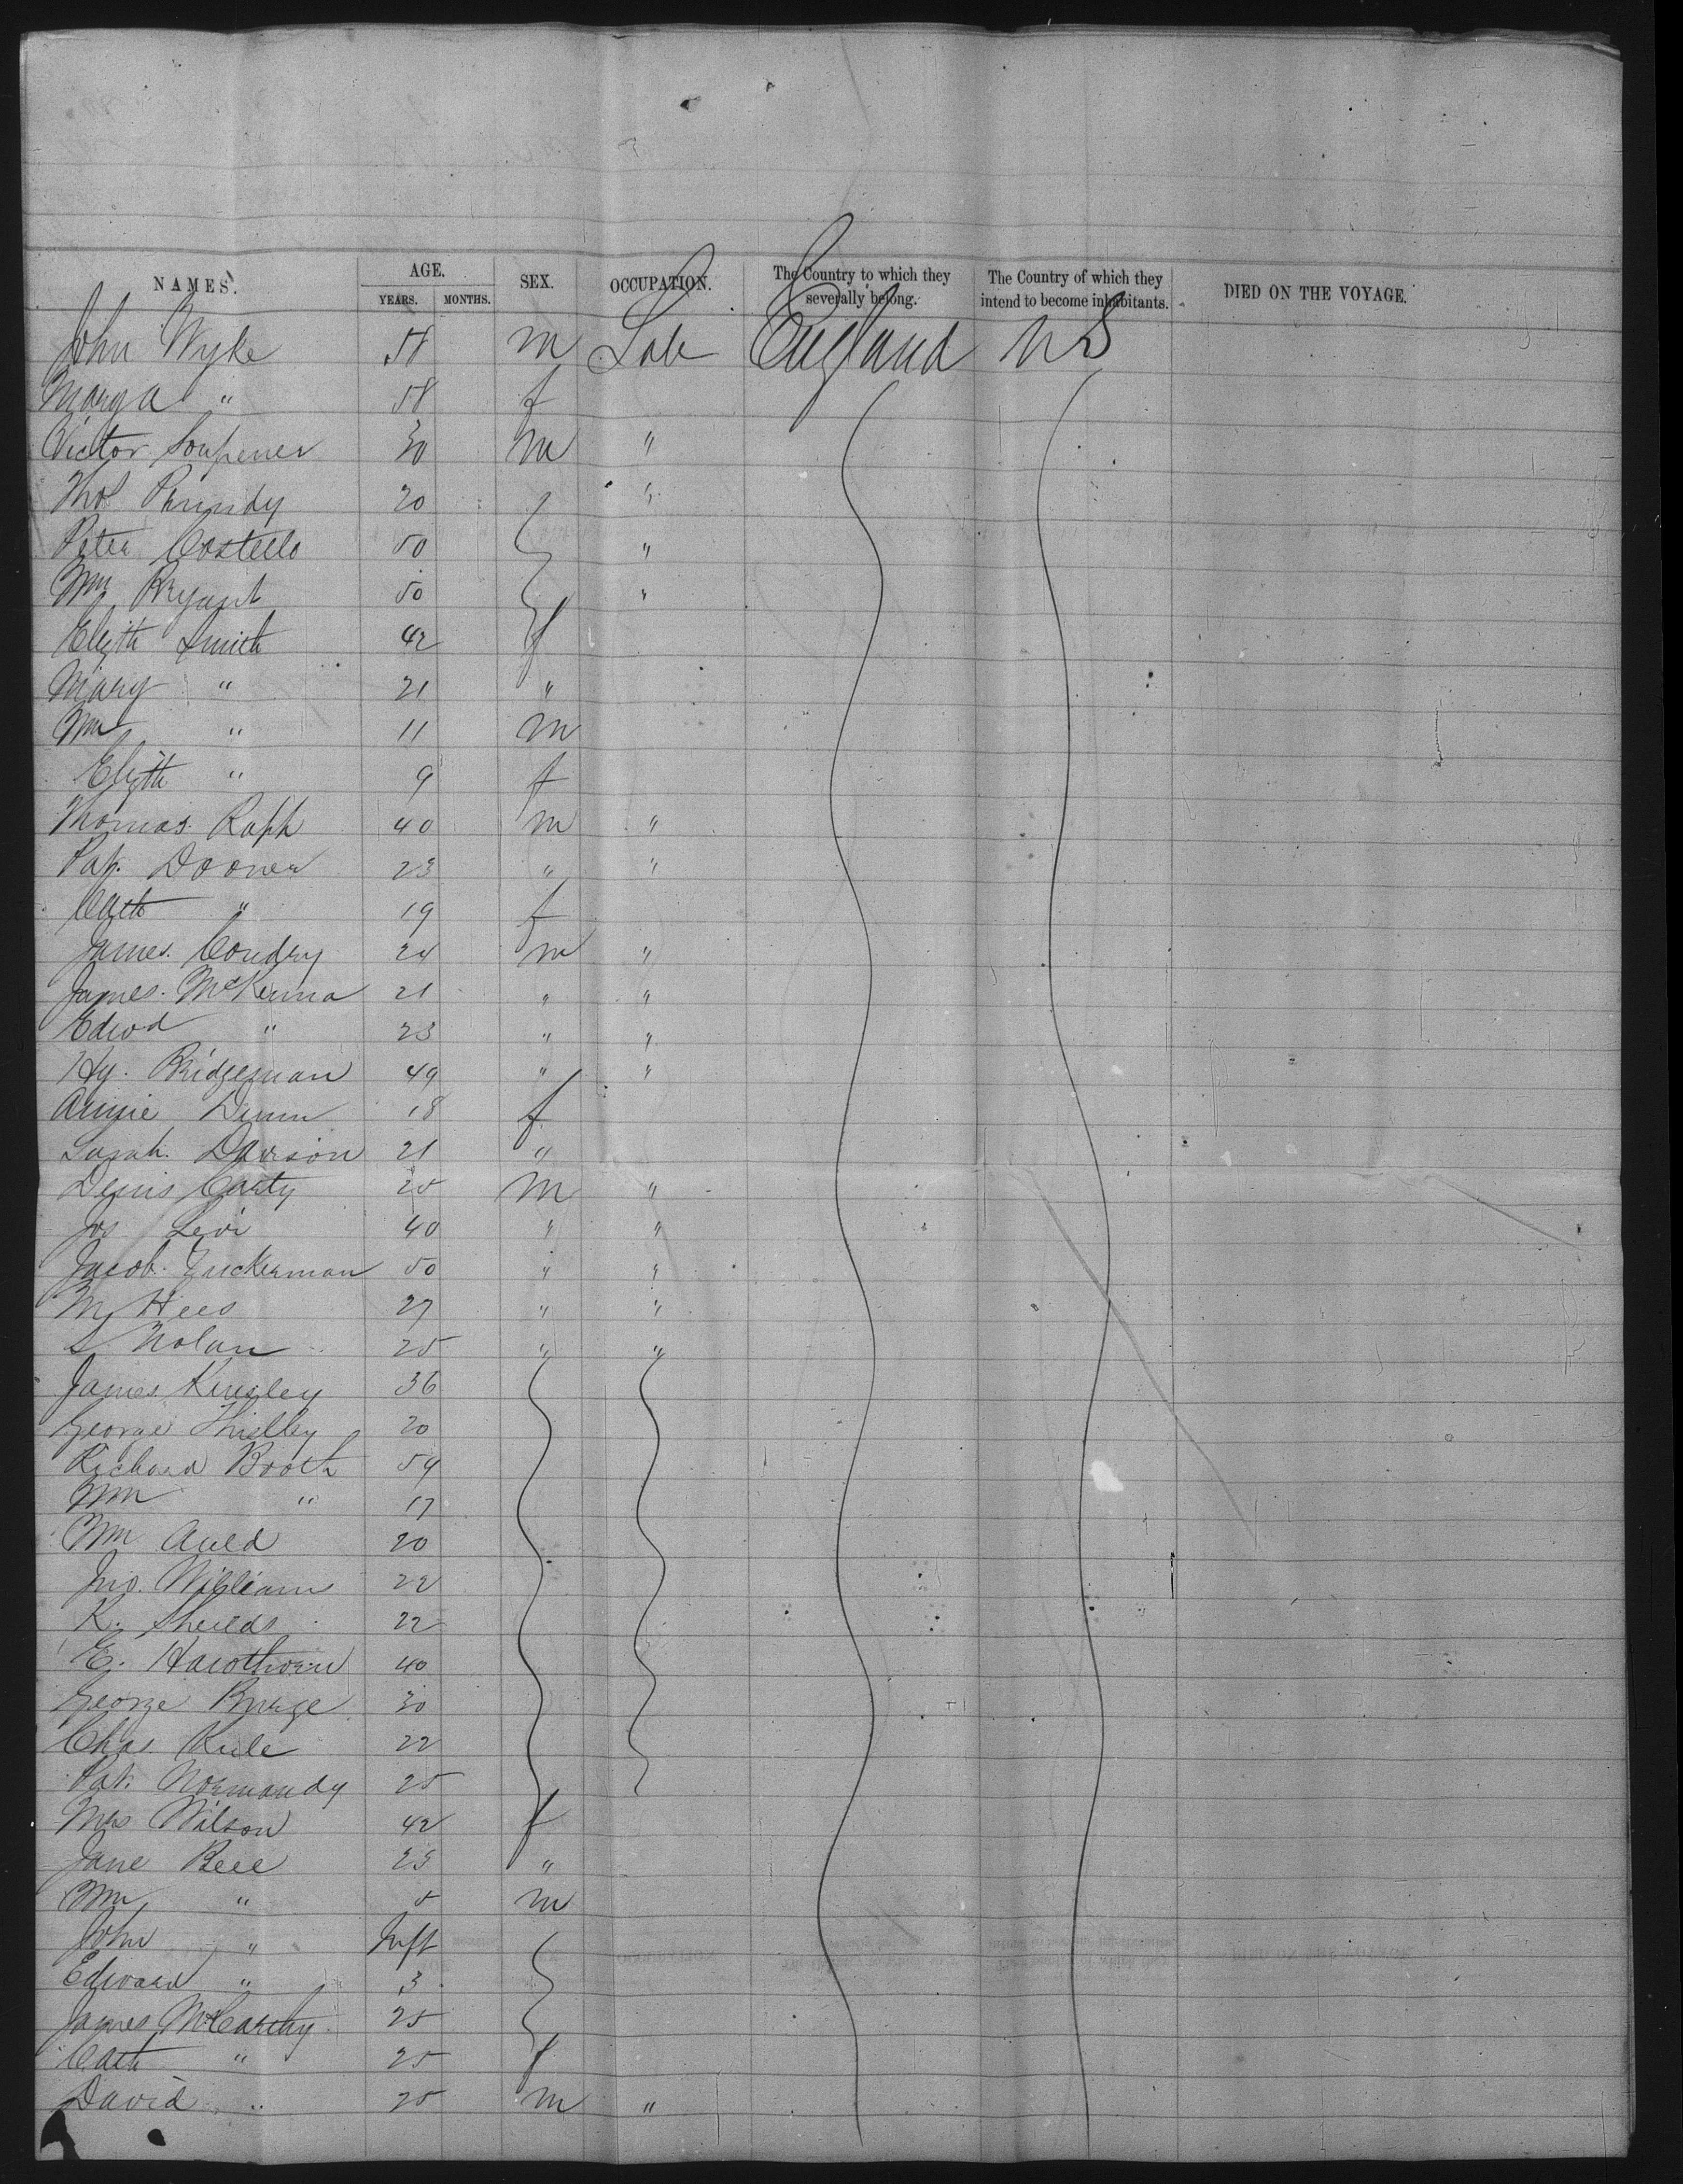 NAMES. AGE. SEX. OCCUPATION. The Country to which they severally belong. The Country of which they intend to become inhabitants. DIED ON THE VOYAGE.
YEARS. MONTHS.
John Wyke 58 m Lab England US
Marg a " 58 f
Victor 30 m "
Thos 20 "
Peter Costello 50 "
Wm Bryant 50 "
Elizth Smith 42 f
Mary " 21 "
Wm " 11 m
Elizth " 9 f
Thomas Raph 40 m "
Pat. Dooner 23 " "
Cath " 19 f
James Condry 24 m "
James McKenna 21 " "
Edwd " 23 " "
Hy. Bridgeman 49 " "
Annie Dunn 18 f
Sarah Davison 21 "
Denis Carty 25 m "
Jos Levi 40 " "
Jacob Zuckerman 50 " "
M Hees 27 " "
S Nolan 25 " "
James Kingley 36
George 20
Richard Booth 59
Wm " 17
Wm Auld 20
Jno. William 22
R. Sheilds 22
E. Hawthorn 40
George Burge 30
Chas. Kule 22
Pat. Normandy 25
Mrs Wilson 42 f
Jane Bell 23 "
Wm " 5 m
John " Inft
Edward " 3
James McCarthy 25
Cath " 25 f
David " 25 m "